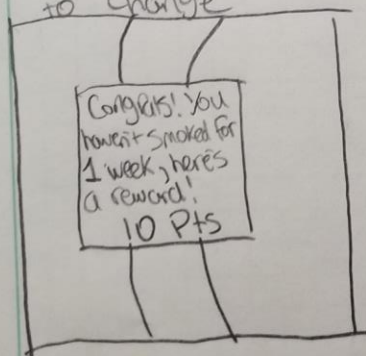 to change
Congrats! You
haven't smoked for
1 week, here's
a reward!
10 Pts